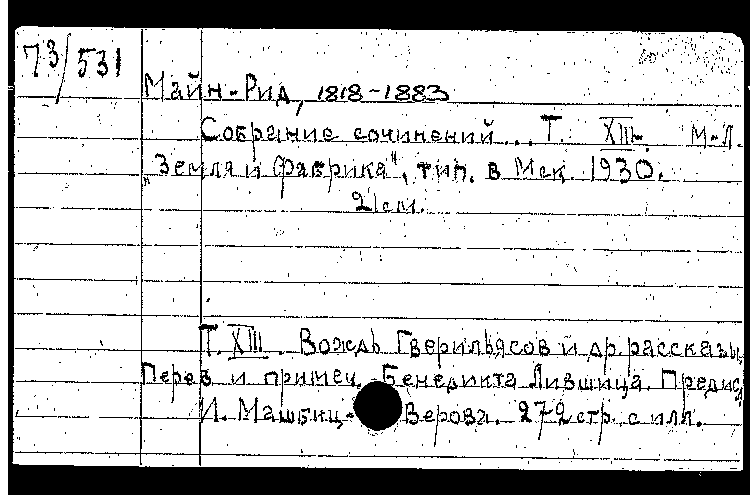 73/531
Майн-Рид, 1818-1883
Собрание сочинений... Т. XIII. М-Л.
„Земля и Фабрика", тип. в Мск. 1930.
21 см.
Т. XIII. Вождь Гверильясов и др. рассказы
Перев и примеч. Бенедикта Лившица. Предис
И. Машбиц-Верова. 272 стр. с илл.